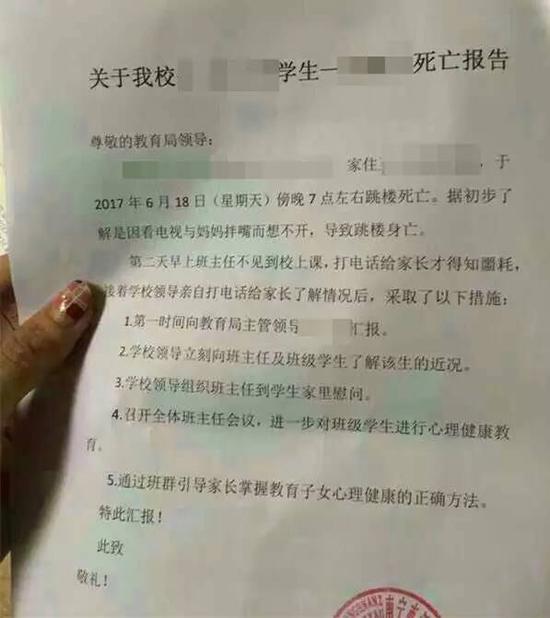 关于我校 学生一 死亡报告
尊敬的教育局领导：
家住 ，于
2017年6月18日（星期天）傍晚7点左右跳楼死亡。据初步了
解是因看电视与妈妈拌嘴而想不开，导致跳楼身亡。
第二天早上班主任不见到校上课，打电话给家长才得知噩耗，
接着学校领导亲自打电话给家长了解情况后，采取了以下措施：
1.第一时间向教育局主管领导 汇报。
2.学校领导立刻向班主任及班级学生了解该生的近况。
3.学校领导组织班主任到学生家里慰问。
4.召开全体班主任会议，进一步对班级学生进行心理健康教
育。
5.通过班群引导家长掌握教育子女心理健康的正确方法。
特此汇报！
此致
敬礼！
南宁市